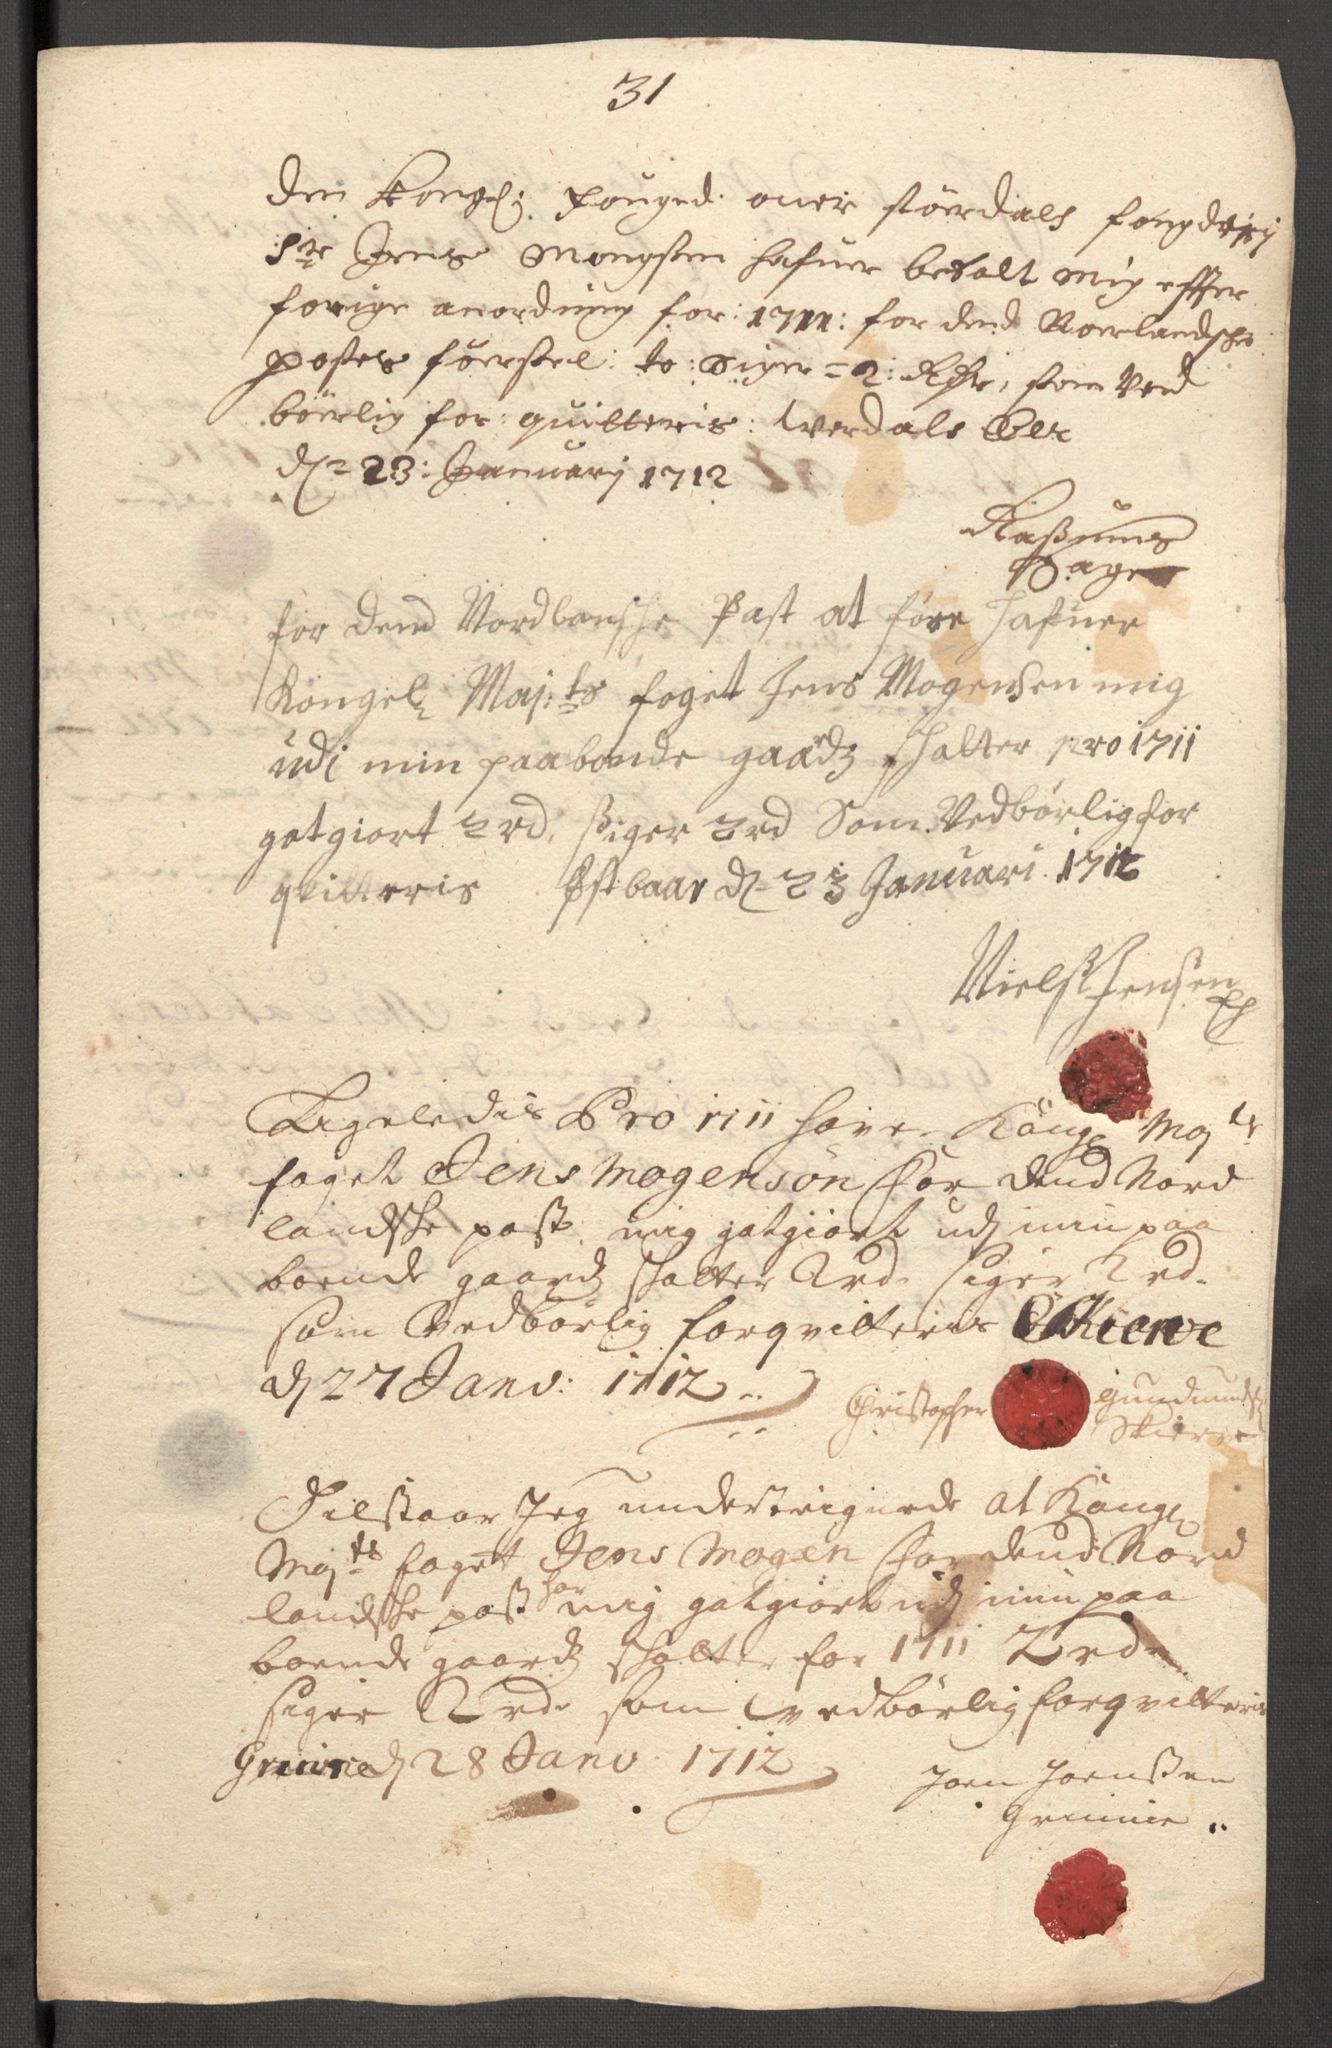 31
Den Kongl: Fouged ouer Stördals fougderj
Sr Jens Mongsen hafuer betalt mig effter
forige anordning for: 1711: for dend Norlandsche
postes föersel: to: siger = 2: Rdr, som Ved
börlig for: quitteris: Werdals Öer
dn 23: Januarj 1712
Raßmus
Hager
for dend Nordlansche Past at före hafuer
Kongel Maj:ts foget Jens Mogensen mig
udi min paaboende gaardz schatter pro 1711
gotgiort 2 rd, siger 2 rd Som Vedbörlig for
qvitteris Östbaar d 23 Januari 1712
Niels Jensen
Ligeledis Pro 1711 haver Kong Maj ts
foget Jens Mogensön for dend Nord
landsche post mig gotgiort udj min paa
boende gaardz schatter 2 rd. siger 2 rd.
som Vedbörlig forqvitteris Skierve
dj 27 Janv: 1712
Christopher Gundmunds
Skierve
Tilstaar Jeg underteignede at Kong
Maj ts foget Jens Mogen for dend Nord
landsche post har mig gotgiort udj min paa
boende gaardz schatter for 1711 2 rdr
siger 2 rdr som vedbörlig forqvitteris
Grinne dj 28 Janv 1712
Joen Joenßen
Grinnie